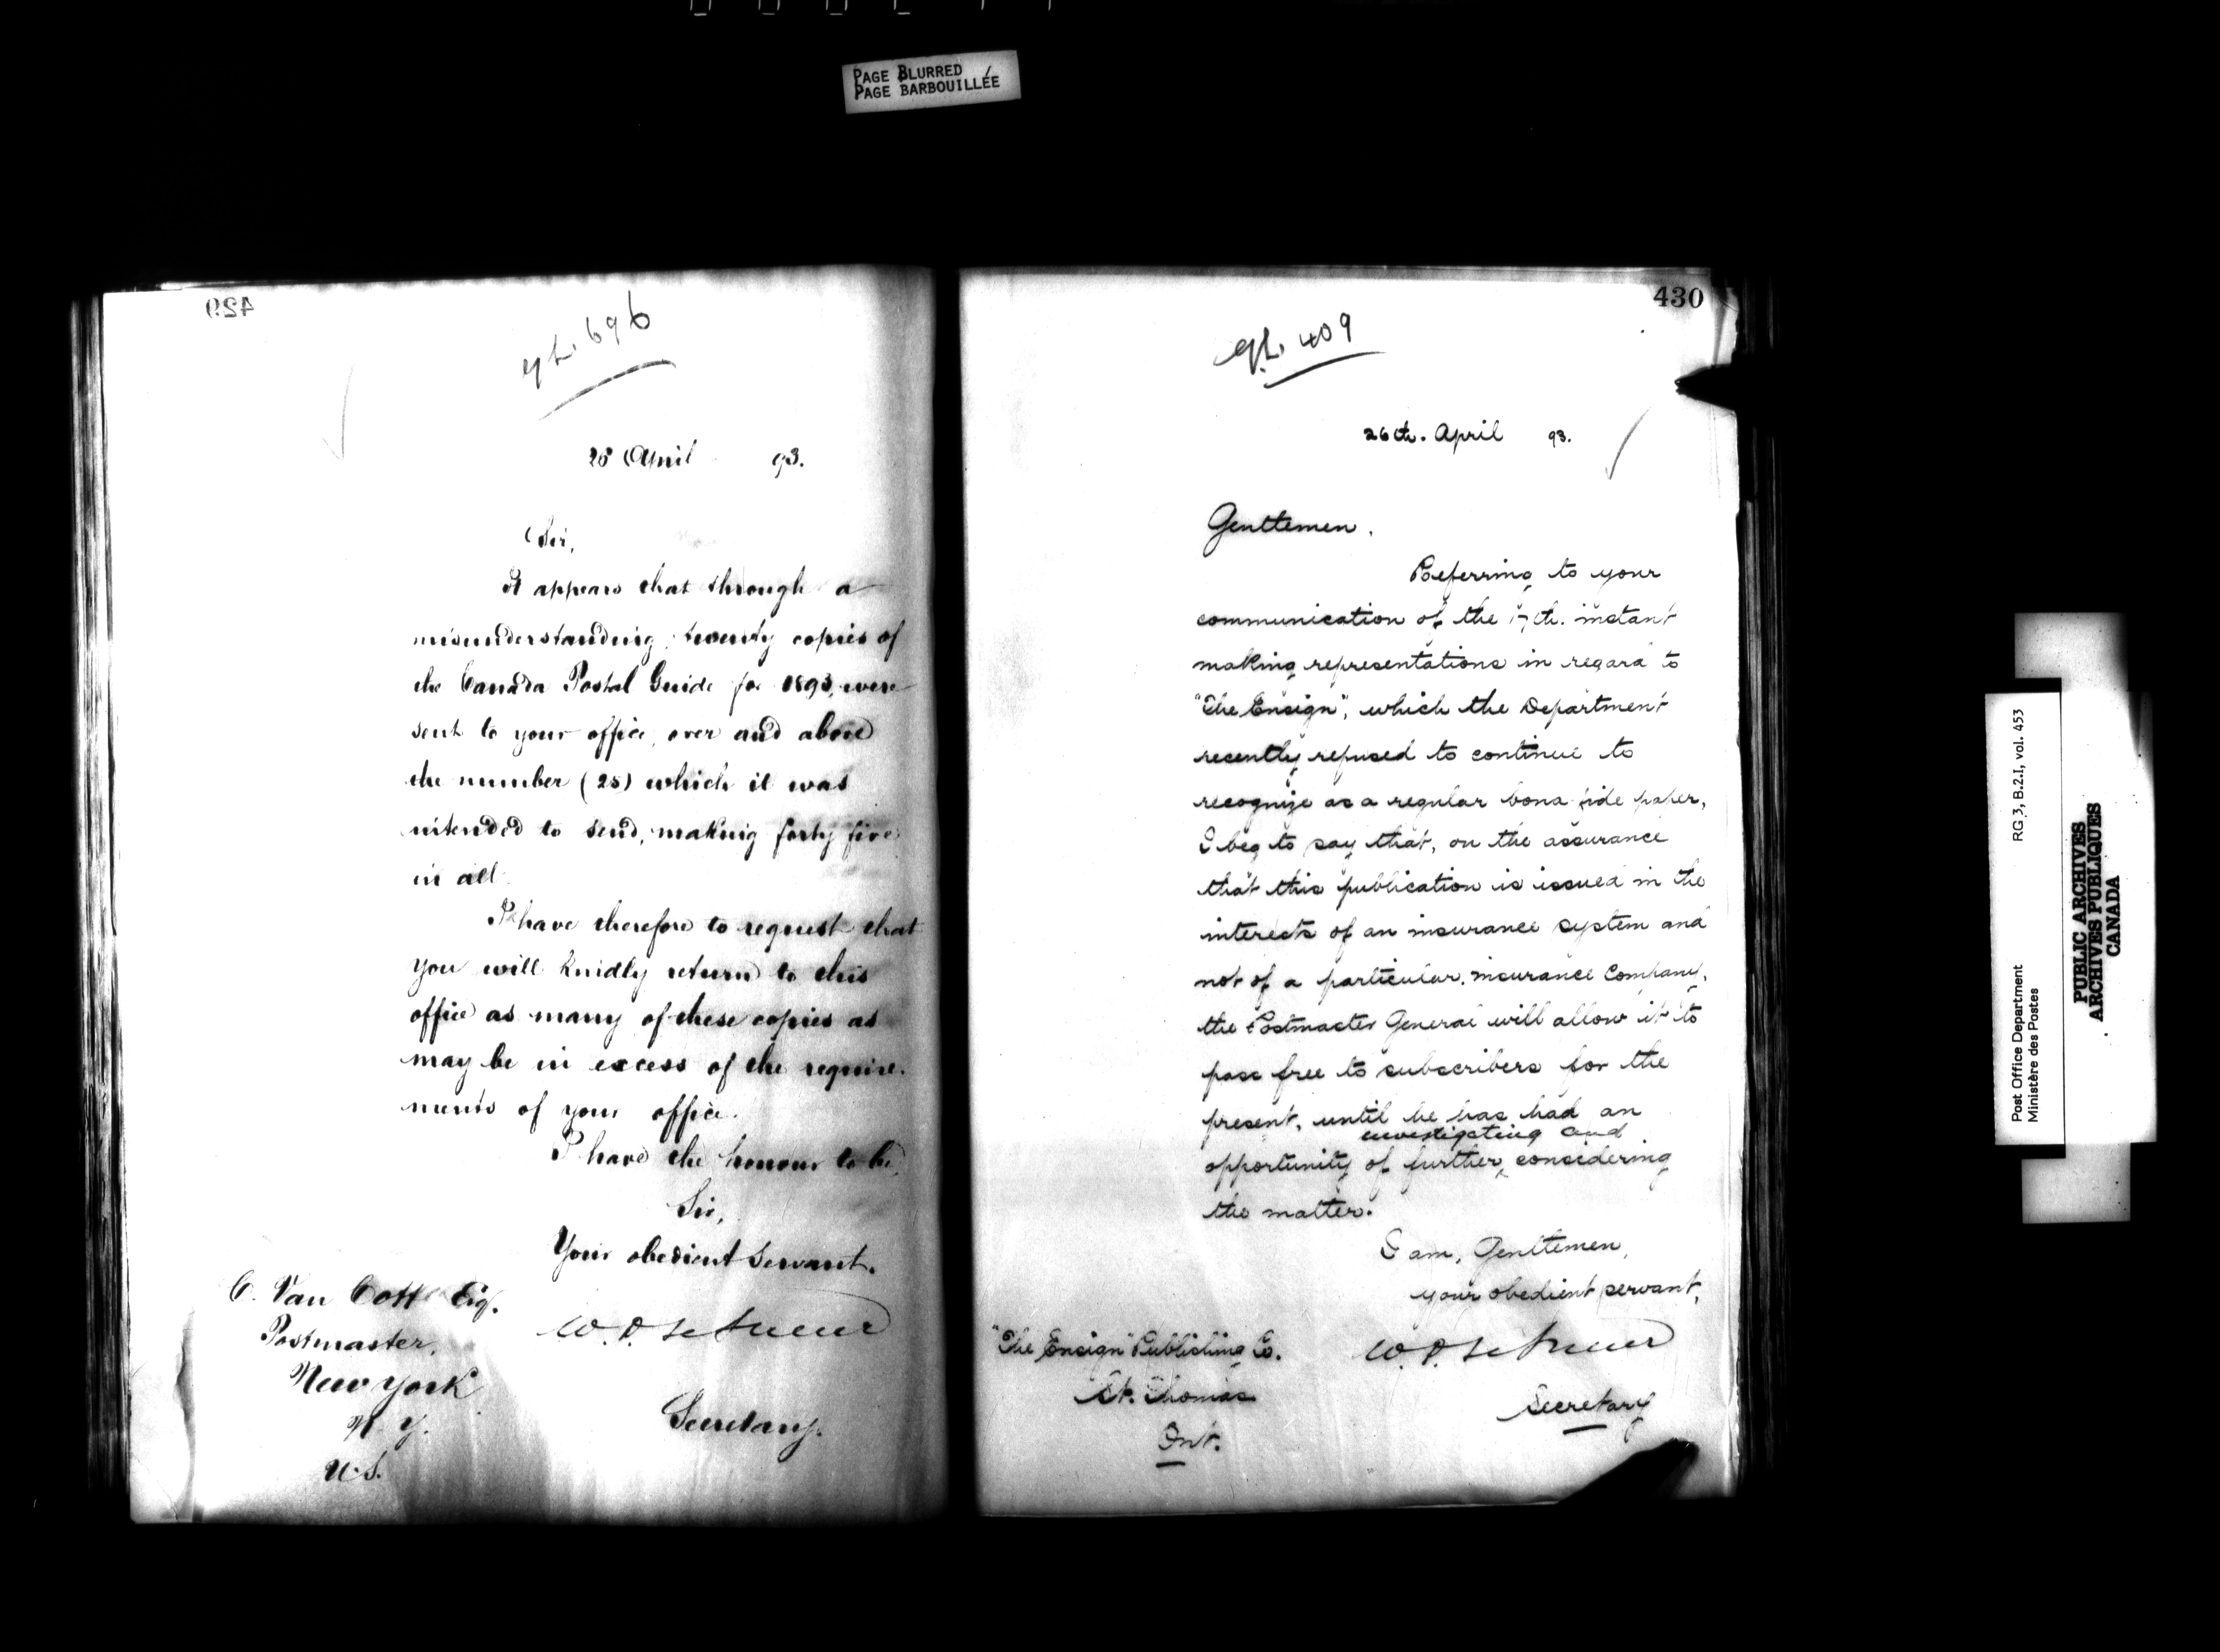 PAGE BLURRED
PAGE BARBOUILLÉE
429
696
25 April 93.
Sir,
It appears that through a
misunderstanding, twenty copies of
the Canada Postal Guide for 1893, were
sent to your office, over and above
the number (25) which it was
intended to send, making forty five
in all.
I have therefore to request that
you will kindly return to this
office as many of these copies as
may be in excess of the require-
ments of your office.
I have the honour to be,
Sir,
Your obedient Servant.
W. D. LeSueur
Secretary.
C. Van Cott Esq.
Postmaster,
New York
N. Y.
U.S.
430
409
26th. April 93.
Gentlemen,
Referring to your
communication of the 17th. instant
making representations in regard to
"The Ensign", which the Department
recently refused to continue to
recognize as a regular bona fide paper,
I beg to say that, on the assurance
that this publication is issued in the
interests of an insurance system and
not of a particular insurance Company,
the Postmaster General will allow it to
pass free to subscribers for the
present, until he has had an
investigating and
opportunity of further considering
the matter.
I am, Gentlemen,
your obedient servant,
W. D. LeSueur
Secretary
"The Ensign" Publishing Co.
St. Thomas
Ont.
Post Office Department RG 3, B.2.I, vol. 453
Ministère des Postes
PUBLIC ARCHIVES
ARCHIVES PUBLIQUES
CANADA